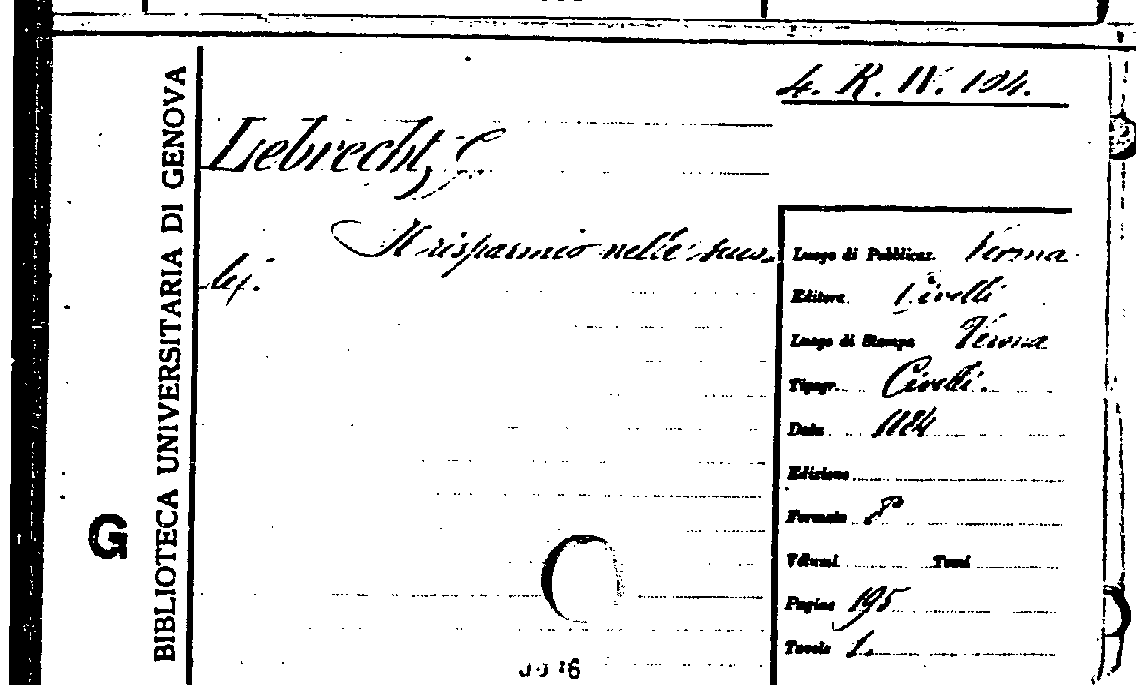 BIBLIOTECA UNIVERSITARIA DI GENOVA
G
4. R. IV. 104.
Lebrecht, G.
Il risparmio nelle scuo-
le.
Luogo di Pubblicaz. Verona
Editore Civelli
Luogo di Stampa Verona
Tipogr. Civelli.
Data 1884
Edizione
Formato 8°
Volumi Tomi
Pagine 195
Tavole 1.